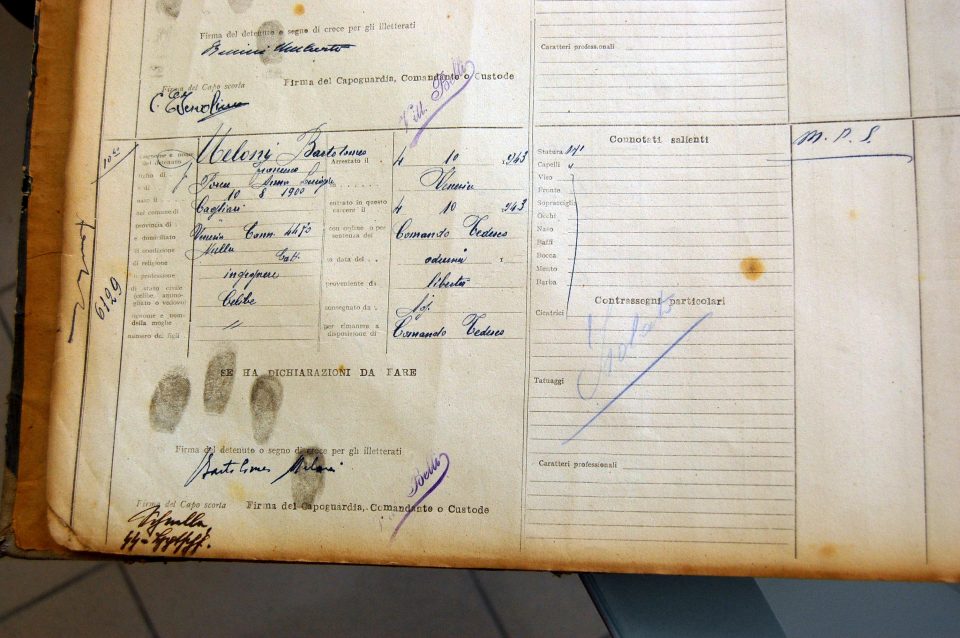 Firma del detenuto o segno di croce per gli illetterati
Firma del Capo scorta
Firma del Capoguardia, Comandante o Custode
Vitt. Bello
Caratteri professionali
Cognome e nome del detenuto
Meloni Bartolomeo
figlio di
Francesco
e di
nato il
10 8 1900
nel comune di
Cagliari
provincia di
e domiciliato
Venezia Cann. 4473
di condizione
Nulla
di religione
Catt.
e professione
ingegnere
di stato civile (celibe, ammogliato o vedovo)
Celibe
cognome e nome della moglie
"
numero dei figli
Arrestato il
4 10 943
Venezia
entrato in questo carceri il
4 10 943
con ordine o per sentenza del
Comando Tedesco
in data del
odierna
proveniente da
libertà
consegnato da
per rimanere a disposizione di
Comando Tedesco
6129
SE HA DICHIARAZIONI DA FARE
Firma del detenuto o segno di croce per gli illetterati
Bartolomeo Meloni
Firma del Capo scorta
Firma del Capoguardia, Comandante o Custode
Bello
Connotati salienti
M. P. S.
Statura
Capelli
Viso
Fronte
Sopracciglia
Occhi
Naso
Baffi
Bocca
Mento
Barba
Contrassegni particolari
Cicatrici
Isolato
Tatuaggi
Caratteri professionali